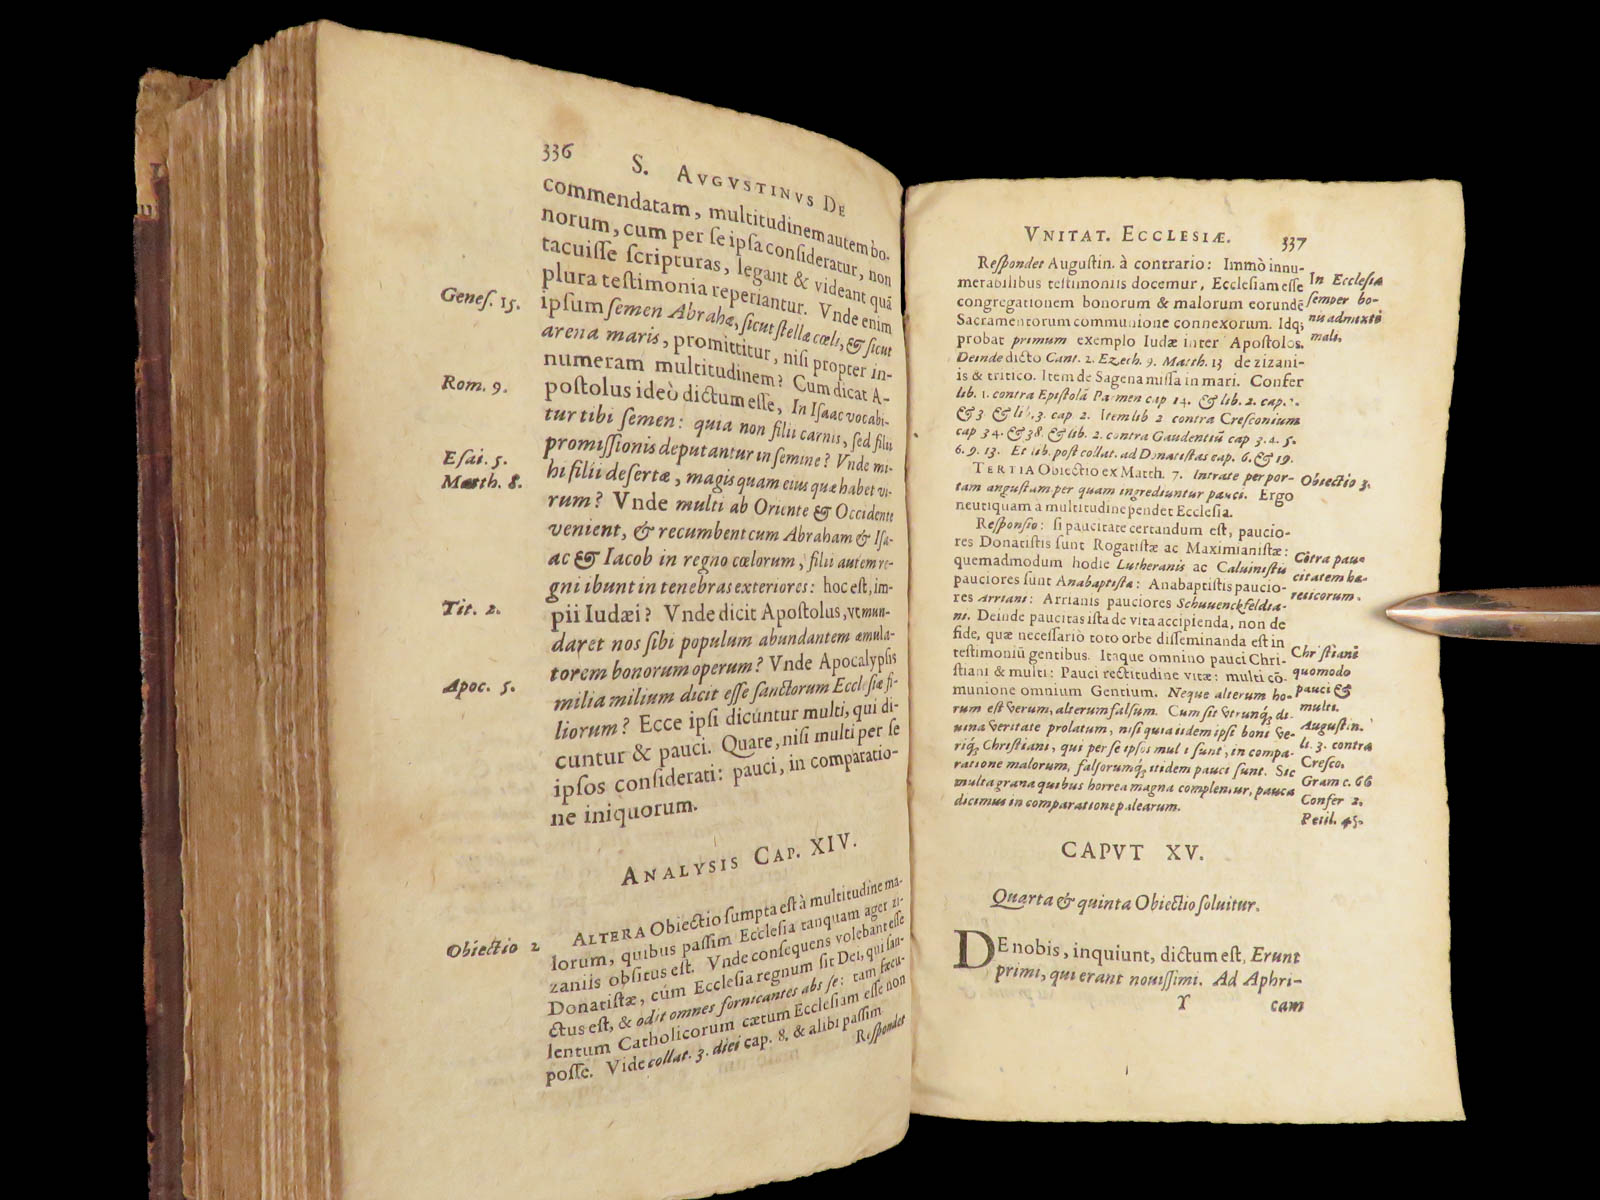 336 S. AVGVSTINVS DE
commendatam, multitudinem autem bo-
norum, cum per se ipsa consideratur, non
tacuisse scripturas, legant & videant quã
plura testimonia reperiantur. Vnde enim
Genes. 15.
ipsum semen Abrahæ, sicut stellæ cœli, & sicut
arena maris, promittitur, nisi propter in-
numeram multitudinem? Cum dicat A-
Rom. 9.
postolus ideò dictum esse, In Isaac vocabi-
tur tibi semen: quia non filii carnis, sed filii
promissionis deputantur in semine? Vnde mi-
Esai. 5.
hi filii desertæ, magis quam eius quæ habet vi-
Matth. 8.
rum? Vnde multi ab Oriente & Occidente
venient, & recumbent cum Abraham & Isa-
ac & Iacob in regno cœlorum, filii autem re-
gni ibunt in tenebras exteriores: hoc est, im-
Tit. 2.
pii Iudæi? Vnde dicit Apostolus, vt mun-
daret nos sibi populum abundantem æmula-
torem bonorum operum? Vnde Apocalypsis
Apoc. 5.
milia milium dicit esse sanctorum Ecclesiæ fi-
liorum? Ecce ipsi dicuntur multi, qui di-
cuntur & pauci. Quare, nisi multi per se
ipsos considerati: pauci, in comparatio-
ne iniquorum.
ANALYSIS CAP. XIV.
Obiectio 2
ALTERA Obiectio sumpta est à multitudine ma-
lorum, quibus passim Ecclesia tanquam ager zi-
zaniis obsitus est. Vnde consequens volebant esse
Donatistæ, cùm Ecclesia regnum sit Dei, qui san-
ctus est, & odit omnes fornicantes abs se: tam fæcu-
lentum Catholicorum cætum Ecclesiam esse non
posse. Vide collat. 3. diei cap. 8. & alibi passim
Respondet
VNITAT. ECCLESIÆ. 337
Respondet Augustin. à contrario: Immò innu-
merabilibus testimoniis docemur, Ecclesiam esse
congregationem bonorum & malorum eorundẽ
Sacramentorum communione connexorum. Idq;
probat primum exemplo Iudæ inter Apostolos.
Deinde dicto Cant. 2. Ezech. 9. Matth. 13 de zizani-
is & tritico. Item de Sagena missa in mari. Confer
lib. 1. contra Epistolã Parmen cap 14. & lib. 2. cap.
& 3 & lib. 3. cap. 2. Item lib 2 contra Cresconium
cap 34. & 38. & lib. 2. contra Gaudentiũ cap 3. 4. 5.
6. 9. 13. Et lib. post collat. ad Donatistas cap. 6. & 19.
In Ecclesia
semper bo-
nis admixti
mali.
TERTIA Obiectio ex Matth. 7. Intrate per por-
tam angustam per quam ingrediuntur pauci. Ergo
neutiquam à multitudine pendet Ecclesia.
Obiectio 3.
Responsio: si paucitate certandum est, paucio-
res Donatistis sunt Rogatistæ ac Maximianistæ:
quemadmodum hodie Lutheranis ac Caluinistis
pauciores sunt Anabaptistæ: Anabaptistis paucio-
res Arriani: Arrianis pauciores Schuuenckfeldia-
ni. Deinde paucitas ista de vita accipienda, non de
fide, quæ necessariò toto orbe disseminanda est in
testimoniũ gentibus. Itaque omnino pauci Chri-
stiani & multi: Pauci rectitudine vitæ: multi cõ-
munione omnium Gentium. Neque alterum ho-
rum est verum, alterum falsum. Cum sit vtrunq; di-
uina veritate prolatum, nisi quia iidem ipsi boni ve-
riq; Christiani, qui per se ipsos multi sunt, in compa-
ratione malorum, falsorumq; itidem pauci sunt. Sic
multa grana quibus horrea magna complentur, pauca
dicimus in comparatione palearum.
Cõtra pau-
citatem hæ-
reticorum.
Christiani
quomodo
pauci &
multi.
Augustin.
li. 3. contra
Cresco.
Gram c. 66
Confer 2.
Petil. 45.
CAPVT XV.
Quarta & quinta Obiectio soluitur.
DE nobis, inquiunt, dictum est, Erunt
primi, qui erant nouissimi. Ad Aphri-
Y cam